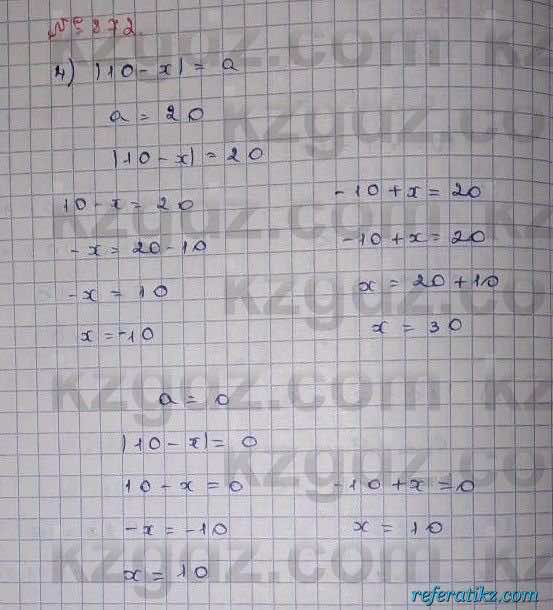 № 872.
4) |10 - x| = a
a = 20
|10 - x| = 20
10 - x = 20
- x = 20 - 10
- x = 10
x = -10
- 10 + x = 20
- 10 + x = 20
x = 20 + 10
x = 30
a = 0
|10 - x| = 0
10 - x = 0
- x = - 10
x = 10
- 10 + x = 0
x = 10
kzgdz.com
referatikz.com